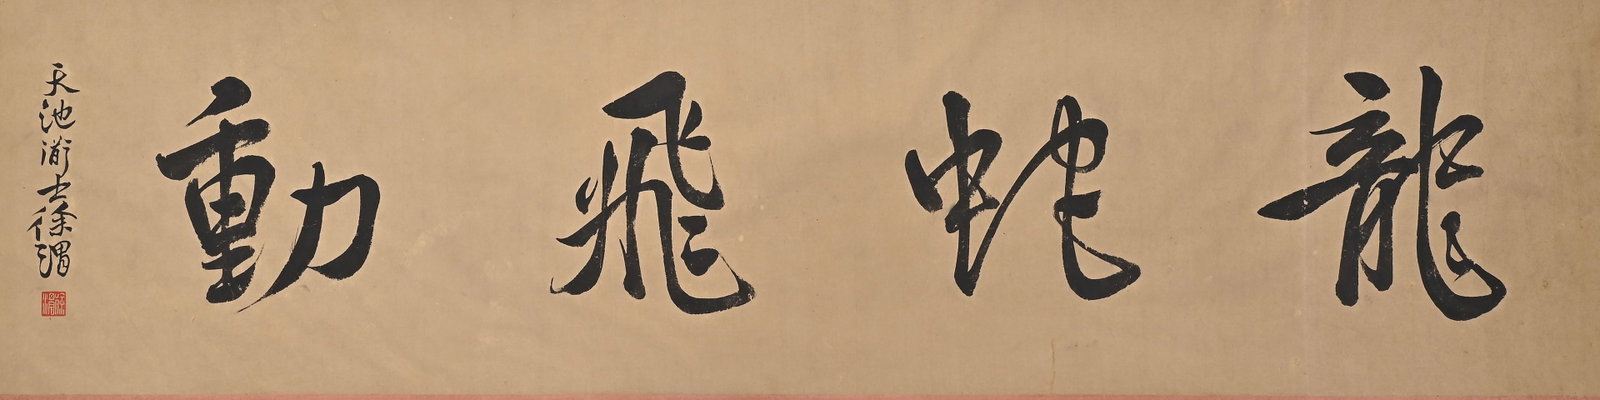 龍蛇飛動
天池漱士徐渭
徐渭